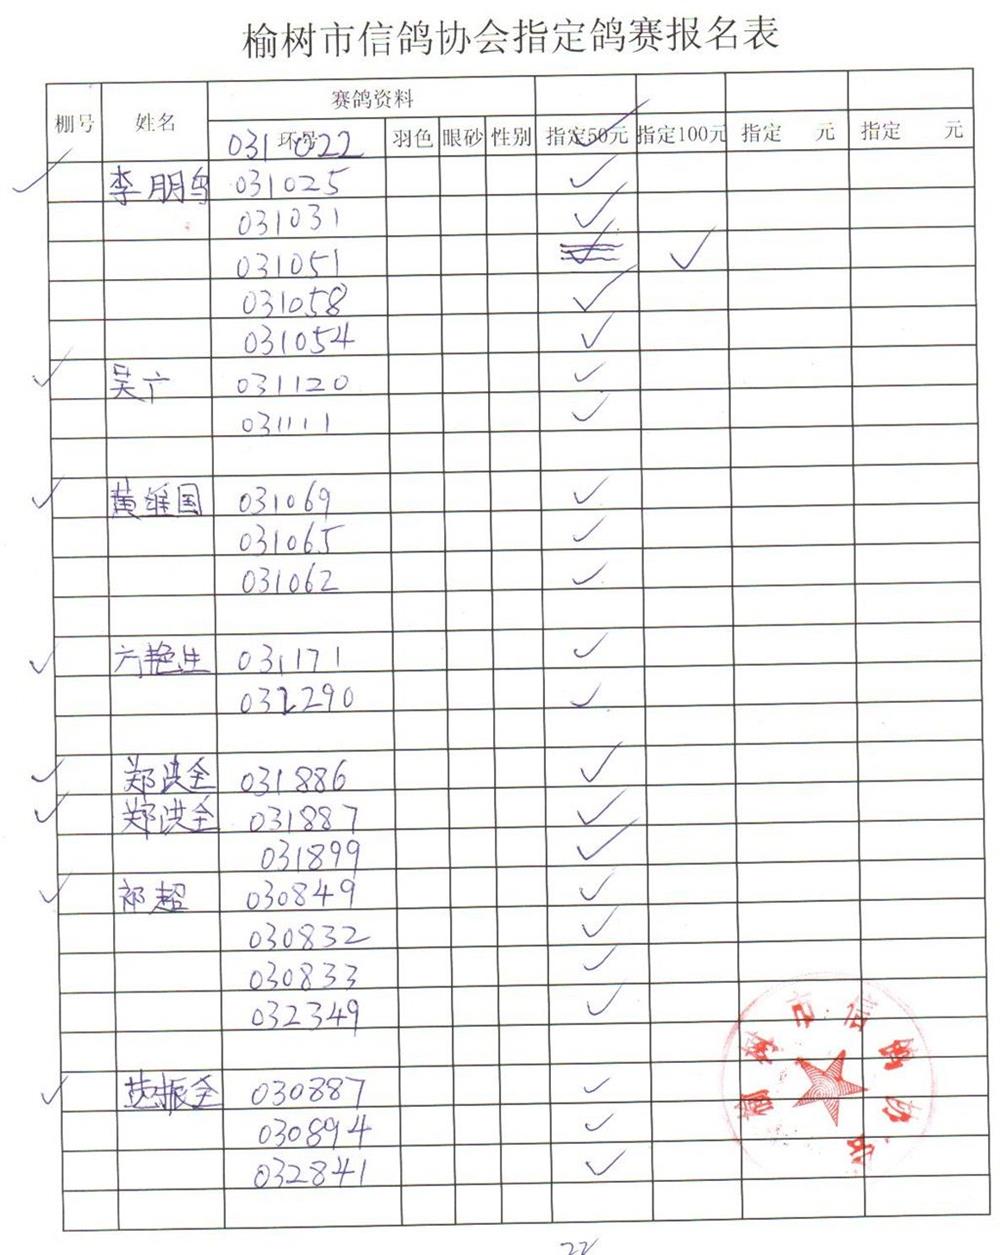 榆树市信鸽协会指定鸽赛报名表
棚号 姓名 赛鸽资料
环号 羽色 眼砂 性别 指定50元 指定100元 指定 元 指定 元
031022 ✓
✓ 李朋鸟 031025 ✓
031031 ✓
031051 ✓
031058 ✓
031054 ✓
✓ 吴亠 031120 ✓
031111 ✓
✓ 黄维国 031069 ✓
031065 ✓
031062 ✓
✓ 艳生 031171 ✓
032290 ✓
✓ 郑洪全 031886 ✓
✓ 郑洪全 031887 ✓
031899 ✓
✓ 祁超 030849 ✓
030832 ✓
030833 ✓
032349 ✓
✓ 振全 030887 ✓
030894 ✓
032841 ✓
榆树市信鸽协会
22